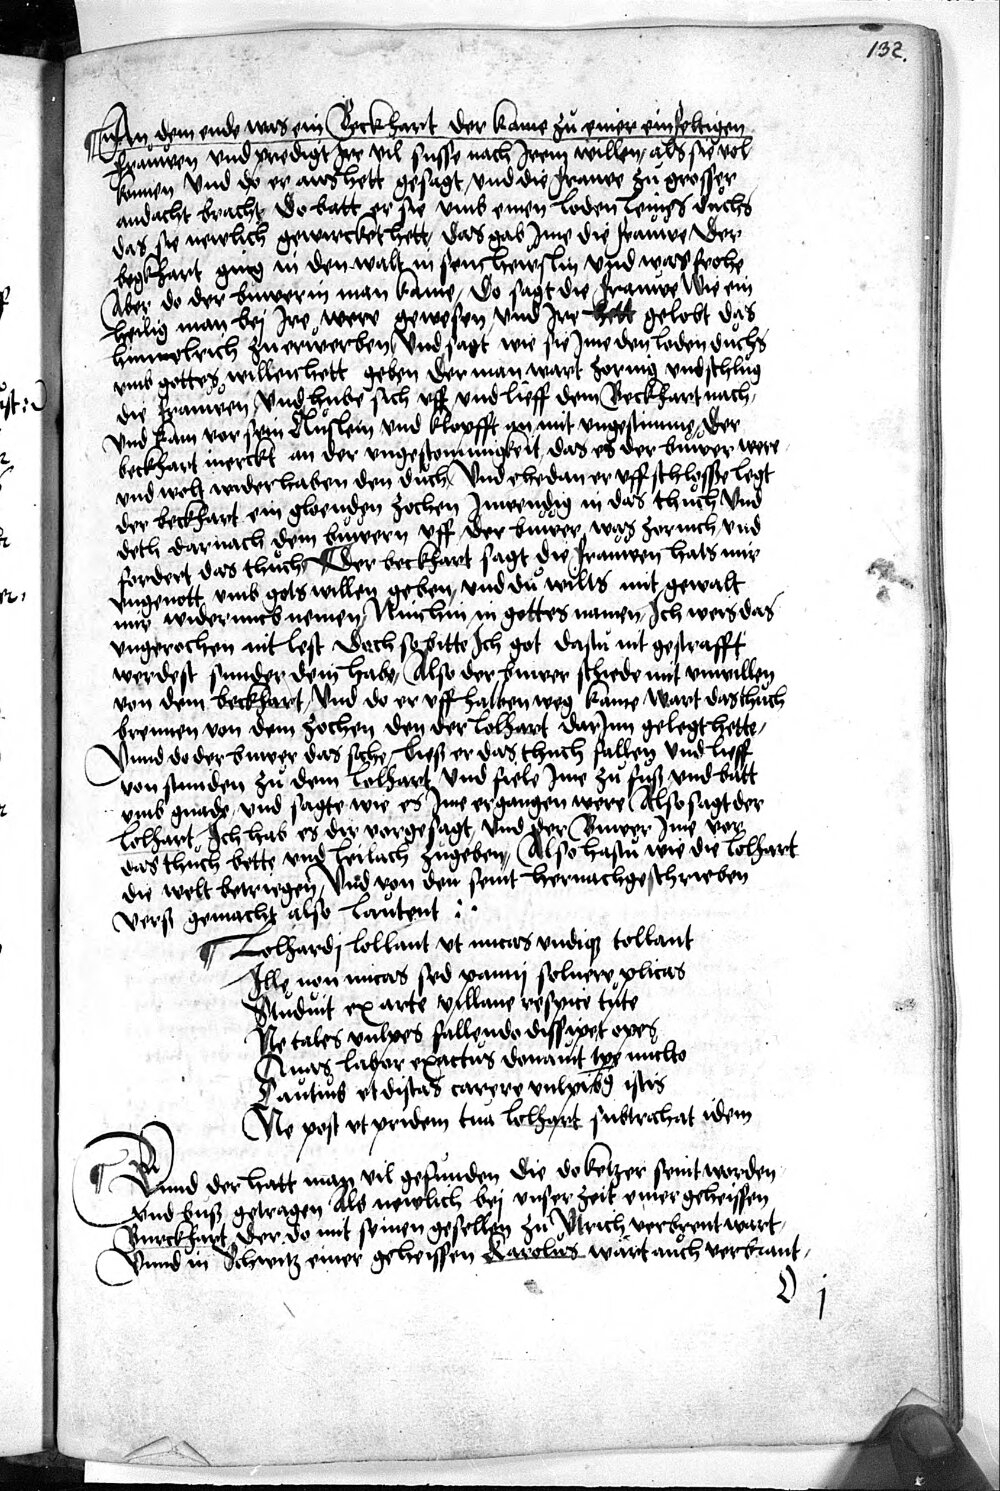 132.
An dem ende was ein Beckhart der kame zu einer einfeltigen
frauwen vnd predigt Jre vil susse nach Jrem willen, als sie wol
konnen Vnd do er aws hett gesagt, vnd die frauwe zu grosser
andacht bracht, Do batt er sie vmb einen loden leinss duchs
das sie newlich gewircket hett, das gab Jme die frauwe, Der
begkhart ging in den walt in sein hewslin vnd was frohe
Aber do der buwer in man kame, Do sagt die frauwe wie ein
heilig man bei Jre were gewesen, vnd Jre hett gelobt das
himmelrich zu erwerben, Vnd sagt wie sie Jme den loden duchs
vmb gottes willen hett geben Der man wart zornig vnd schlug
die frauwen, Vnd hube sich vff vnd lieff dem Beckhart nach,
Vnd kam vor sein huslein vnd klopfft an mit vngestimme, Der
beckhart merckt an der vngestommigkeit, das es der buwer were
vnd wolt wider haben den duch, Vnd ehedan er vff schlosse legt
der beckhart ein gloenden zochen Jnwendig in das thuch Vnd
deth darnach dem buwern vff, Der buwer was zornich vnd
fordert das thuch, Der beckhart sagt die frauwen hats mir
vngenott vmb gots willen geben, vnd du wilts mit gewalt
mir widerumb nemen, Nim hin in gottes namen, Jch weis das
vngerochen nit lest Doch so bitte Jch got dastu nit gestrafft
werdest sunder dein habe, Also der buwer schiede mit vnwillen
von dem beckhart, Vnd do er vff halben weg kame wart das thuch
brennen von dem zochen den der lolhart dar Jnn gelegt hette,
Vnnd do der buwer das sahe, ließ er das thuch fallen vnd lieff
von stunden zu dem lolhart, Vnd fiele Jme zu fuß vnd batt
vmb gnade, vnd sagte wie es Jme ergangen were, Also sagt der
lolhart Jch hab es dir vorgesagt, Vnd der Buwer Jme vor
das thuch bette vnd leilach zugeben, Also hastu wie die lolhart
die welt betriegen, Vnd von den seint hernachgeschrieben
verß gemacht also lautent
Lolhardj lollant vt micas vndique tollant
Ille non micas sed pannj soluere plicas
Studuit ex arte villane respice tute
Ne tales vulpes fallendo dissipet opes
Quas labor exactus donauit tpe multo
Cautius et distas carere vulpibus istis
Ne post vt pridem tua lolhart subtrahat idem
Vnnd der hatt man vil gefunden die do ketzer seint worden
vnd buß getragen Als newlich bei vnser zeit einer geheissen
Burckhart, Der do mit seinen gesellen zu Vtrich verbrent wart,
Vnnd in Schwitz einer geheissen Karolus wart auch verbrant,
O j